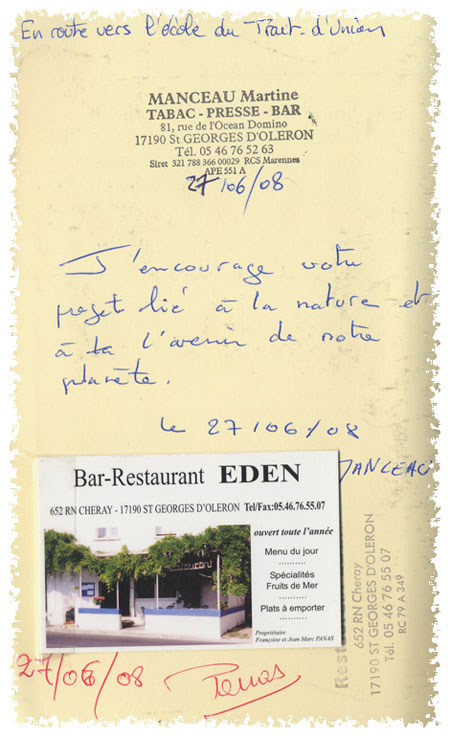 En route vers l'école du Trait-d'Union
MANCEAU Martine
TABAC - PRESSE - BAR
81, rue de l'Ocean Domino
17190 St GEORGES D'OLERON
Tél. 05 46 76 52 63
Siret 321 788 366 00029 RCS Marennes
APE 551 A
27/06/08
J'encourage votre
projet lié à la nature et
à la l'avenir de notre
planète.
le 27/06/08
MANCEAU
Bar-Restaurant EDEN
652 RN CHERAY - 17190 ST GEORGES D'OLERON Tel/Fax:05.46.76.55.07
ouvert toute l'année
Menu du jour
..........
Spécialités
Fruits de Mer
..........
Plats à emporter
..........
Propriétaire
Françoise et Jean Marc PANAS
Rest
652 RN Cheray
17190 ST GEORGES D'OLERON
Tél. 05 46 76 55 07
RC 79 A 349
27/06/08 Panas